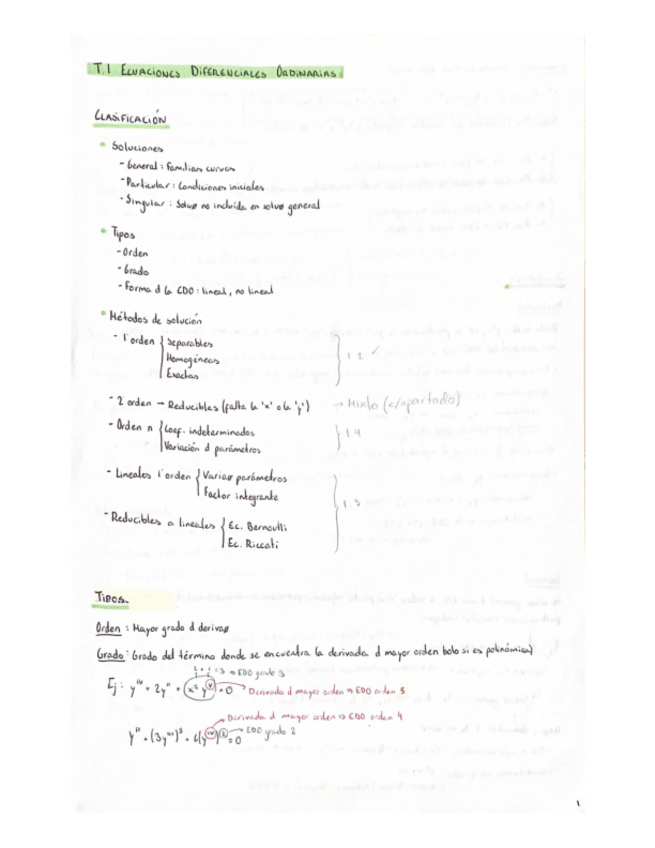 T.1 ECUACIONES DIFERENCIALES ORDINARIAS
CLASIFICACIÓN
• Soluciones
- General: Familias curvas
- Particular: Condiciones iniciales
- Singular: Soluº no incluida en soluº general
• Tipos
- Orden
- Grado
- Forma d la EDO: lineal, no lineal
• Métodos de solución
- 1º orden { Separables
Homogéneas
Exactas } 1.2 ✓
- 2 orden → Reducibles (falta la 'x' o la 'y') → Mixto (c/apartado)
- Orden n { Coef. indeterminados
Variación d parámetros } 1.4
- Lineales 1º orden { Variaº parámetros
Factor integrante
- Reducibles a lineales { Ec. Bernoulli
Ec. Riccati } 1.3
TIPOS
Orden: Mayor grado d derivaº
Grado: Grado del término donde se encuentra la derivada d mayor orden (solo si es polinómica)
→ EDO grado 3
Ej: y''' + 2y'' + (x² y^v) = 0 → Derivada d mayor orden → EDO orden 5
→ Derivada d mayor orden → EDO orden 4
→ EDO grado 2